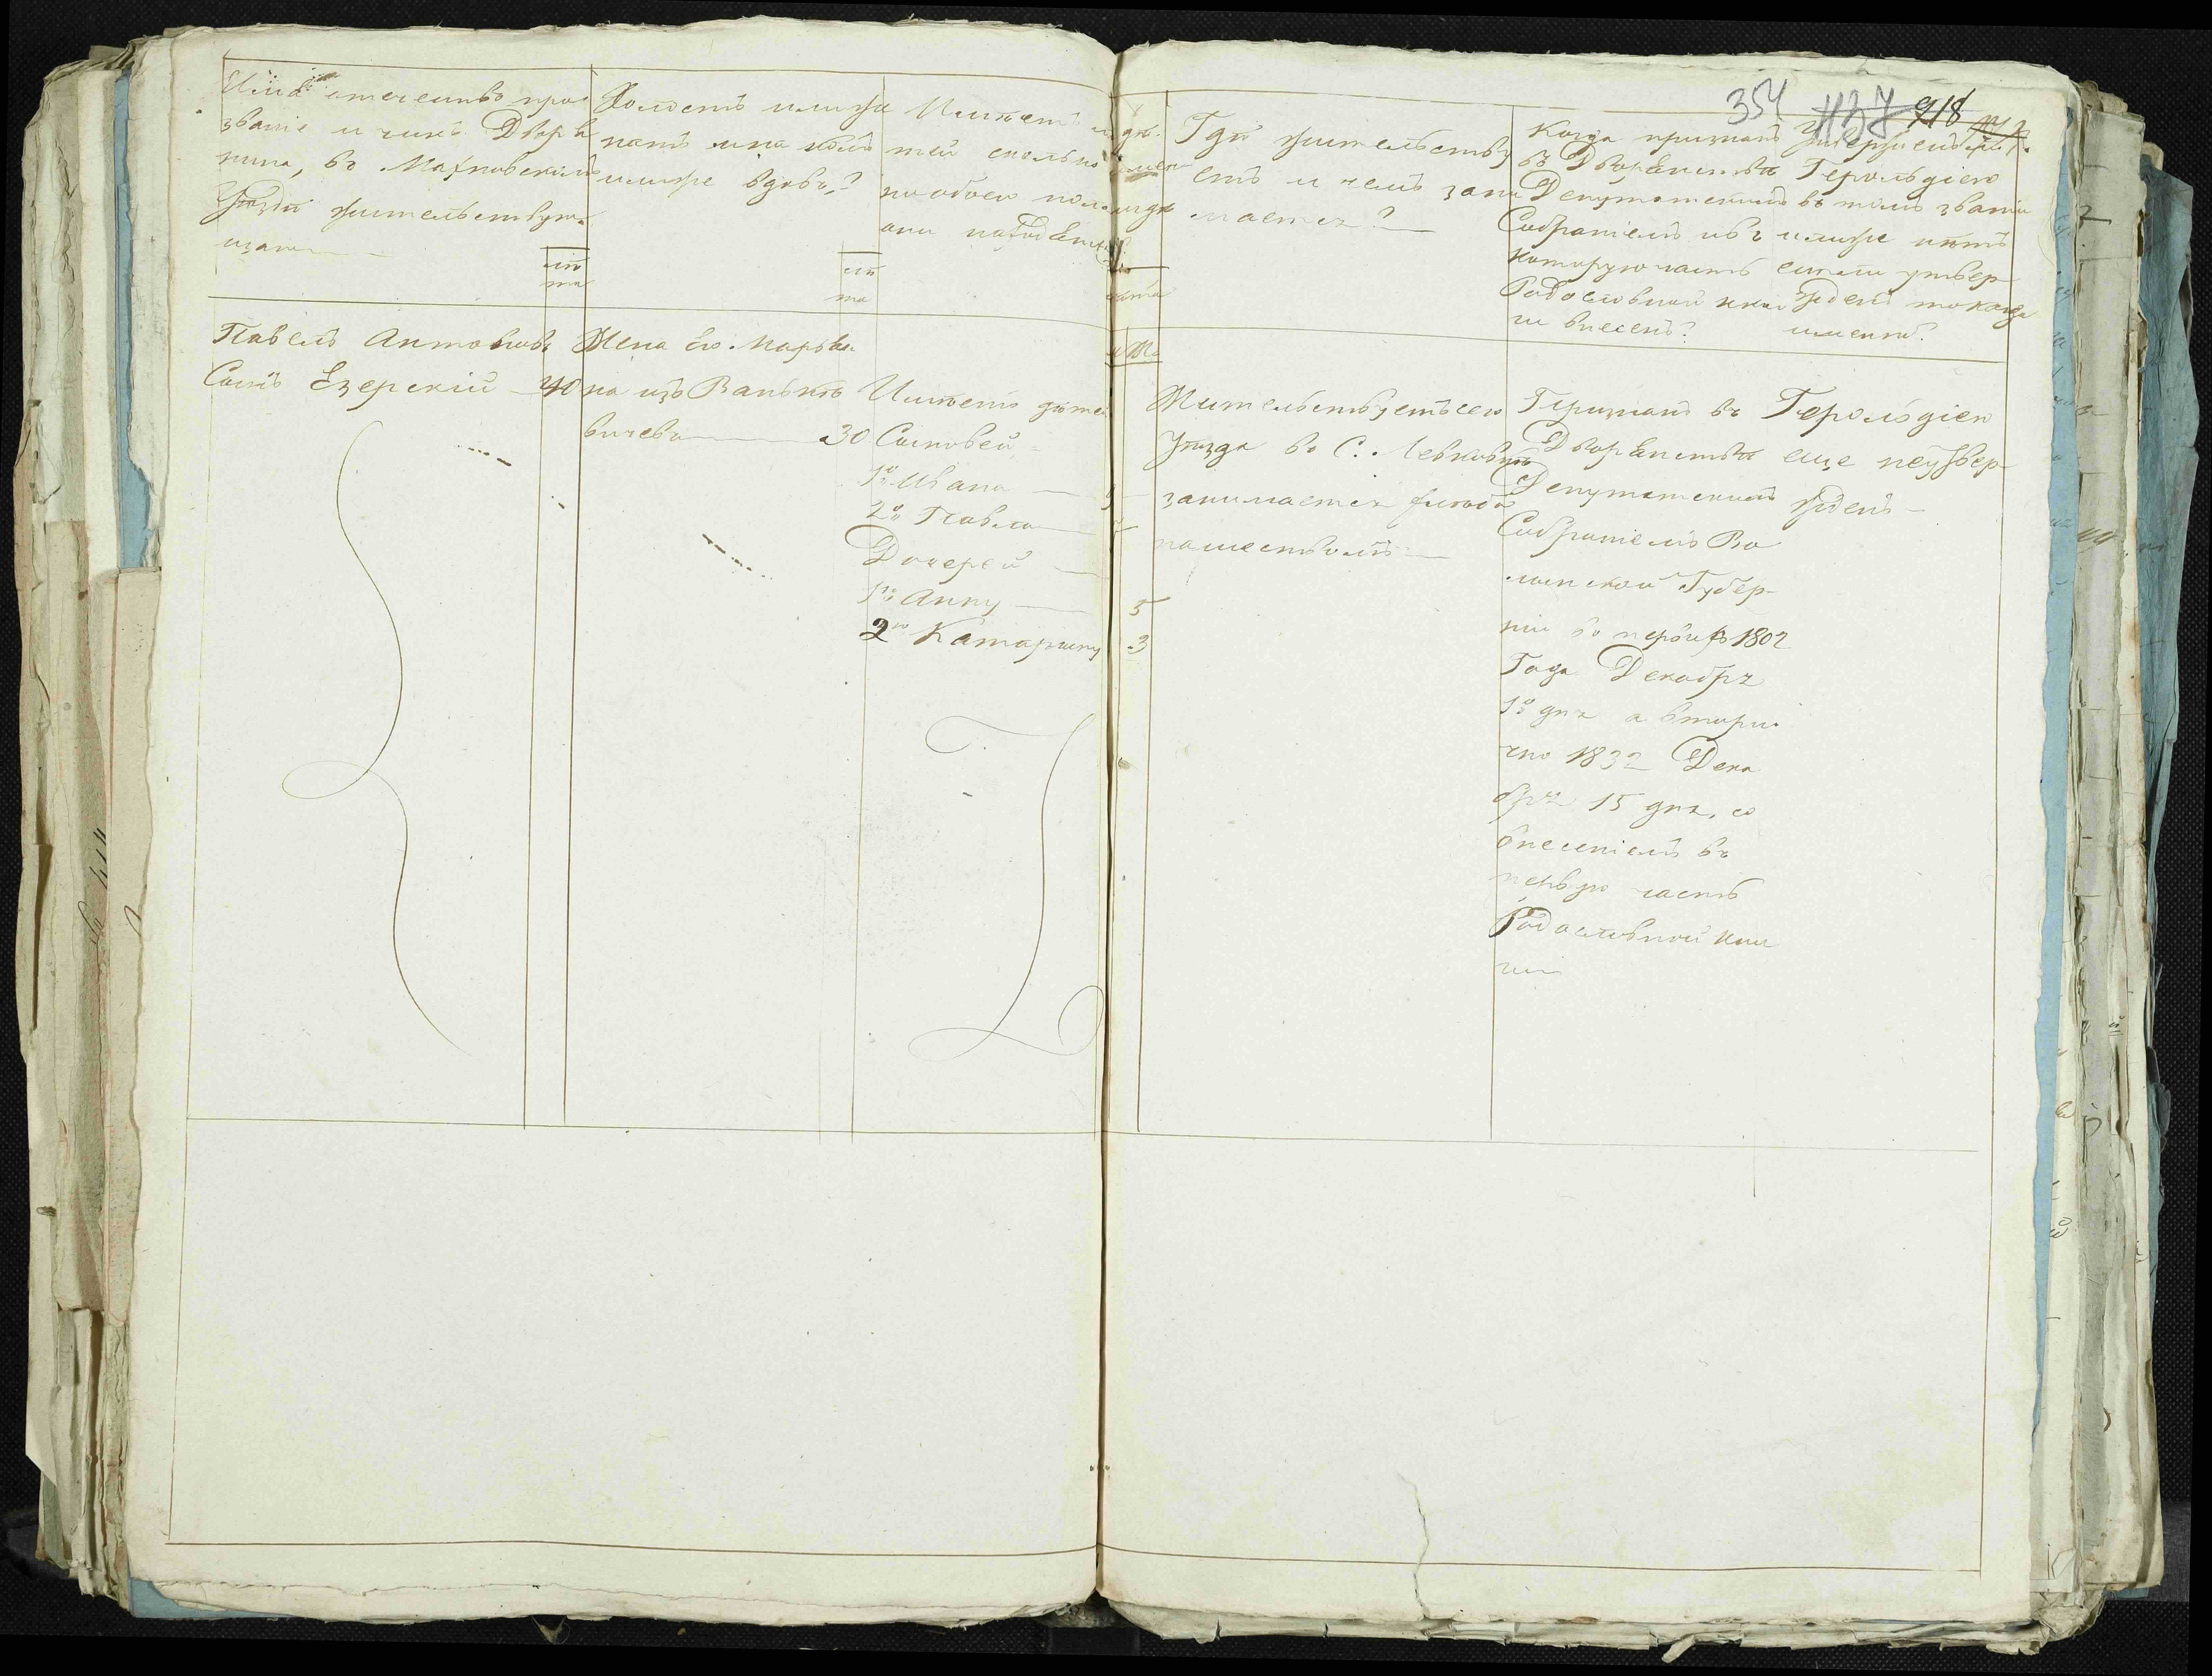 354 1137 918
Имя отечество про
званіе и чинъ Дворя
нина, въ Махновскомъ
Уѣздѣ жительствую
щаго
лѣ
та
Холостъ или же
натъ и на комъ
или же вдовъ?
лѣ
та
Имѣетъ ли дѣ-
тей сколько имен
но обоего пола и гдѣ
они находятся?
лѣта
Гдѣ жительству
етъ и чемъ зани
мается?
Когда признанъ
въ Дворянствѣ
Депутатскимъ
Собраніемъ и въ
которую часть
Родословной кни
ги внесенъ?
Утвержденъ ли
Герольдіею
въ томъ званіи
или же нѣтъ
если утвер
жденъ то когда
именно?
Павелъ Антоновъ
Сынъ Езерскій 40
Жена его Марья
на изъ Ванько
вичево 30
Имѣетъ дѣтей
Сыновей
1о Ивана 9
2о Павла 7
Дочерей
1ю Анну 5
2ю Катаржину 3
Жительствуетъ сего
Уѣзда въ С. Левковкѣ
занимается хлѣбо
пашествомъ
Признанъ въ
Дворянствѣ
Депутатскимъ
Собраніемъ Во
лынской Губер-
ніи въ первыхъ 1802
Года Декабря
1о дня а втори
чно 1832 Дека
бря 15 дня, со
внесеніемъ въ
первую часть
Родословной кни
ги
Герольдіею
еще неутвер
жденъ